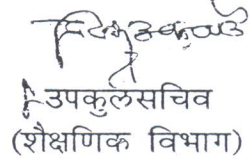 उपकुलसचिव
(शैक्षणिक विभाग)